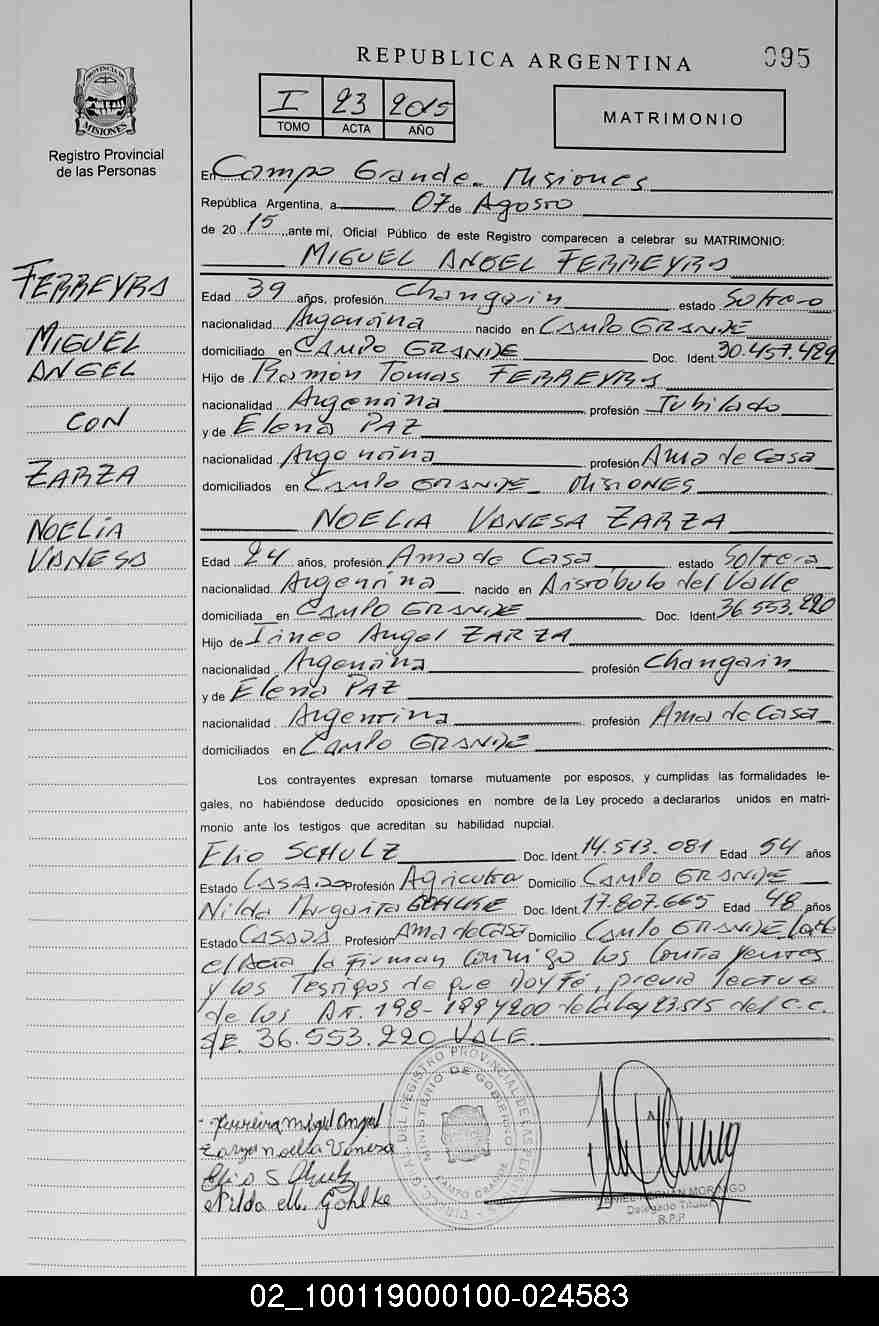 REPUBLICA ARGENTINA
095
I 23 2015
TOMO ACTA AÑO
MATRIMONIO
PROVINCIA DE
MISIONES
Registro Provincial
de las Personas
En Campo Grande - Misiones
República Argentina, a 07 de Agosto
de 20 15 ,ante mí, Oficial Público de este Registro comparecen a celebrar su MATRIMONIO:
MIGUEL ANGEL FERREYRA
FERREYRA
MIGUEL
ANGEL
CON
ZARZA
NOELIA
VANESA
Edad 39 años, profesión Changarin estado Soltero
nacionalidad Argentina nacido en CAMPO GRANDE
domiciliado en CAMPO GRANDE Doc. Ident. 30.457.429
Hijo de Ramon Tomas FERREYRA
nacionalidad Argentina profesión Jubilado
y de Elena PAZ
nacionalidad Argentina profesión Ama de Casa
domiciliados en CAMPO GRANDE MISIONES
NOELIA VANESA ZARZA
Edad 24 años, profesión Ama de Casa estado Soltera
nacionalidad Argentina nacido en Aristobulo del Valle
domiciliada en CAMPO GRANDE Doc. Ident. 36.553.220
Hijo de Irineo Angel ZARZA
nacionalidad Argentina profesión Changarin
y de Elena PAZ
nacionalidad Argentina profesión Ama de Casa
domiciliados en CAMPO GRANDE
Los contrayentes expresan tomarse mutuamente por esposos, y cumplidas las formalidades le-
gales, no habiéndose deducido oposiciones en nombre de la Ley procedo a declararlos unidos en matri-
monio ante los testigos que acreditan su habilidad nupcial.
Elio SCHULZ Doc. Ident. 14.513.081 Edad 54 años
Estado CASADO Profesión Agricultor Domicilio CAMPO GRANDE
Nilda Margarita GOHLKE Doc. Ident. 17.807.665 Edad 48 años
Estado CASADA Profesión Ama de Casa Domicilio CAMPO GRANDE
el Acta la firman conmigo los Contrayentes
y los Testigos de que Doy Fé, previa lectura
de los Art. 198-199 y 200 de la Ley 23.515 del C.C.
S/E. 36.553.220 VALE.
DEL REGISTRO PROVINCIAL DE LAS PERSONAS
MINISTERIO DE GOBIERNO
CAMPO GRANDE
Ferreira Miguel Angel
Zarza Noelia Vanesa
Elio Schulz
Nilda M. Gohlke
MORINGO
Delegado Titular
R.P.P.
02_100119000100-024583